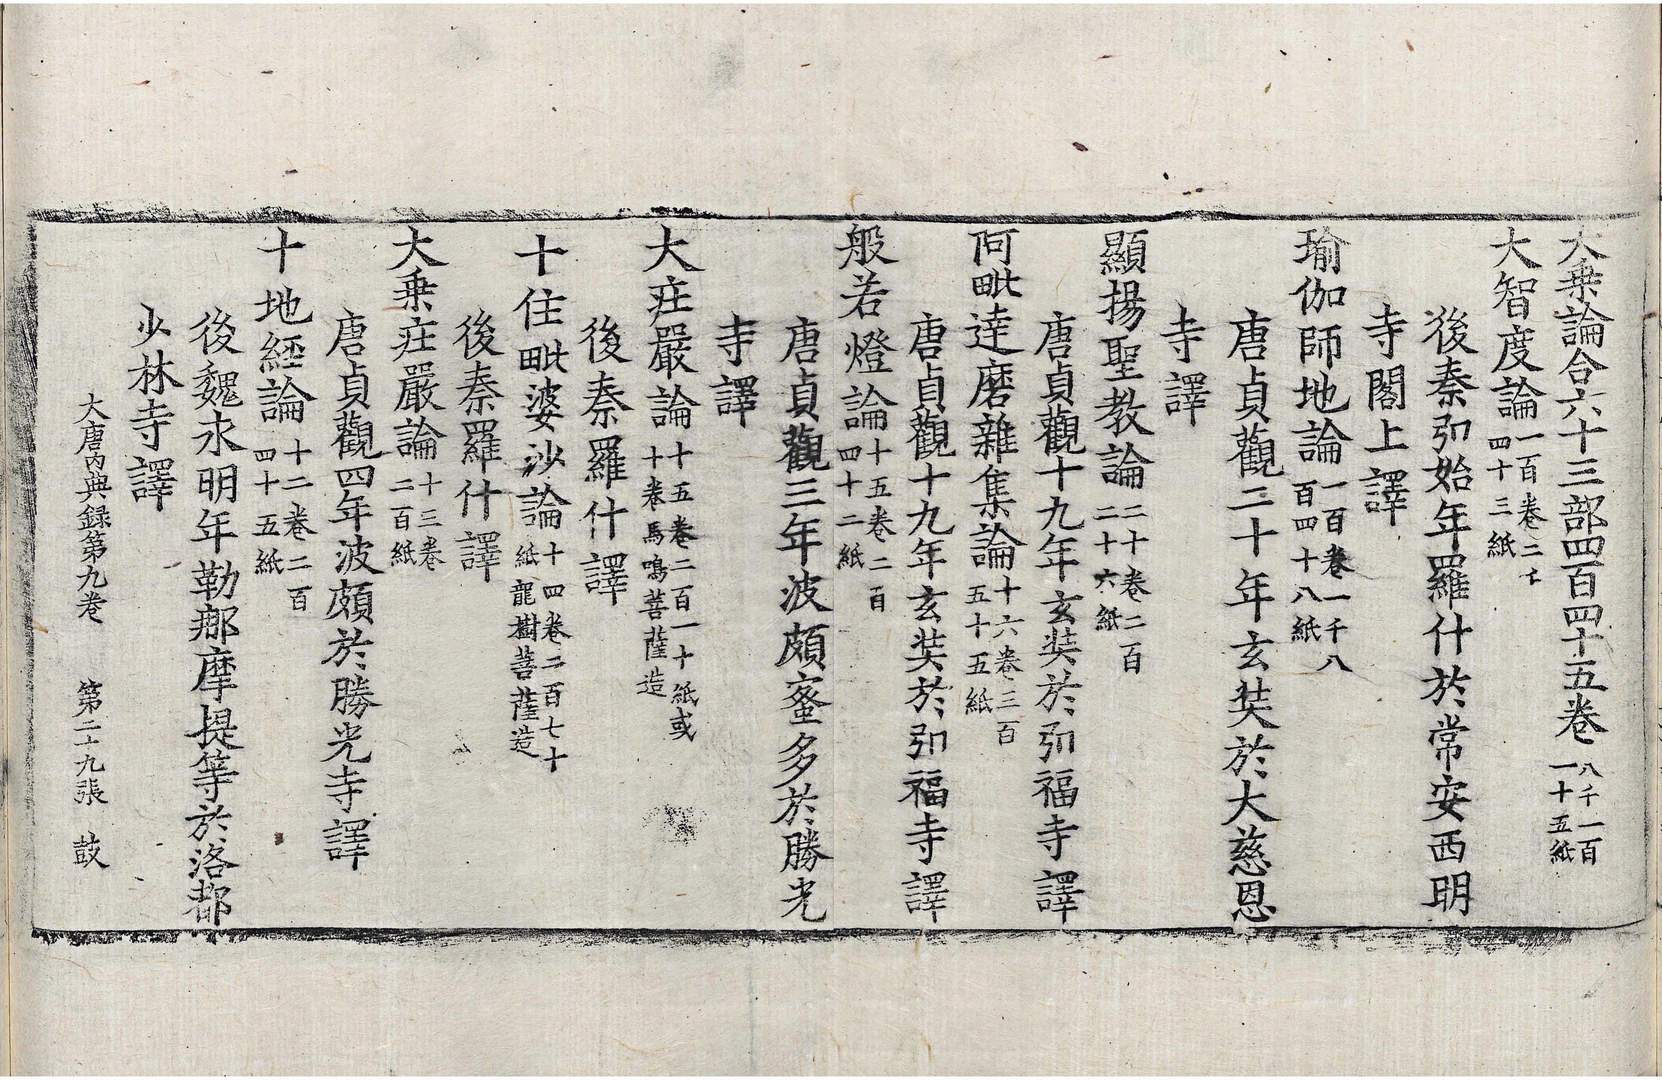 大乗論合六十三部四百四十五卷八千一百一十五紙
大智度論一百卷二千四十三紙
後秦弘始年羅什於常安西明
寺閣上譯
瑜伽師地論一百卷一千八百四十八紙
唐貞觀二十年玄奘於大慈恩
寺譯
顯揚聖教論二十卷二百二十六紙
唐貞觀十九年玄奘於弘福寺譯
阿毗達磨雜集論十六卷三百五十五紙
唐貞觀十九年玄奘於弘福寺譯
般若燈論十五卷二百四十二紙
唐貞觀三年波頗蜜多於勝光
寺譯
大庄嚴論十五卷二百一十紙或十卷馬鳴菩薩造
後秦羅什譯
十住毗婆沙論十四卷二百七十紙龍樹菩薩造
後秦羅什譯
大乗庄嚴論十三卷二百紙
唐貞觀四年波頗於勝光寺譯
十地經論十二卷二百四十五紙
後魏永明年勒那摩提等於洛都
少林寺譯
大唐内典録第九卷　第二十九張　鼓